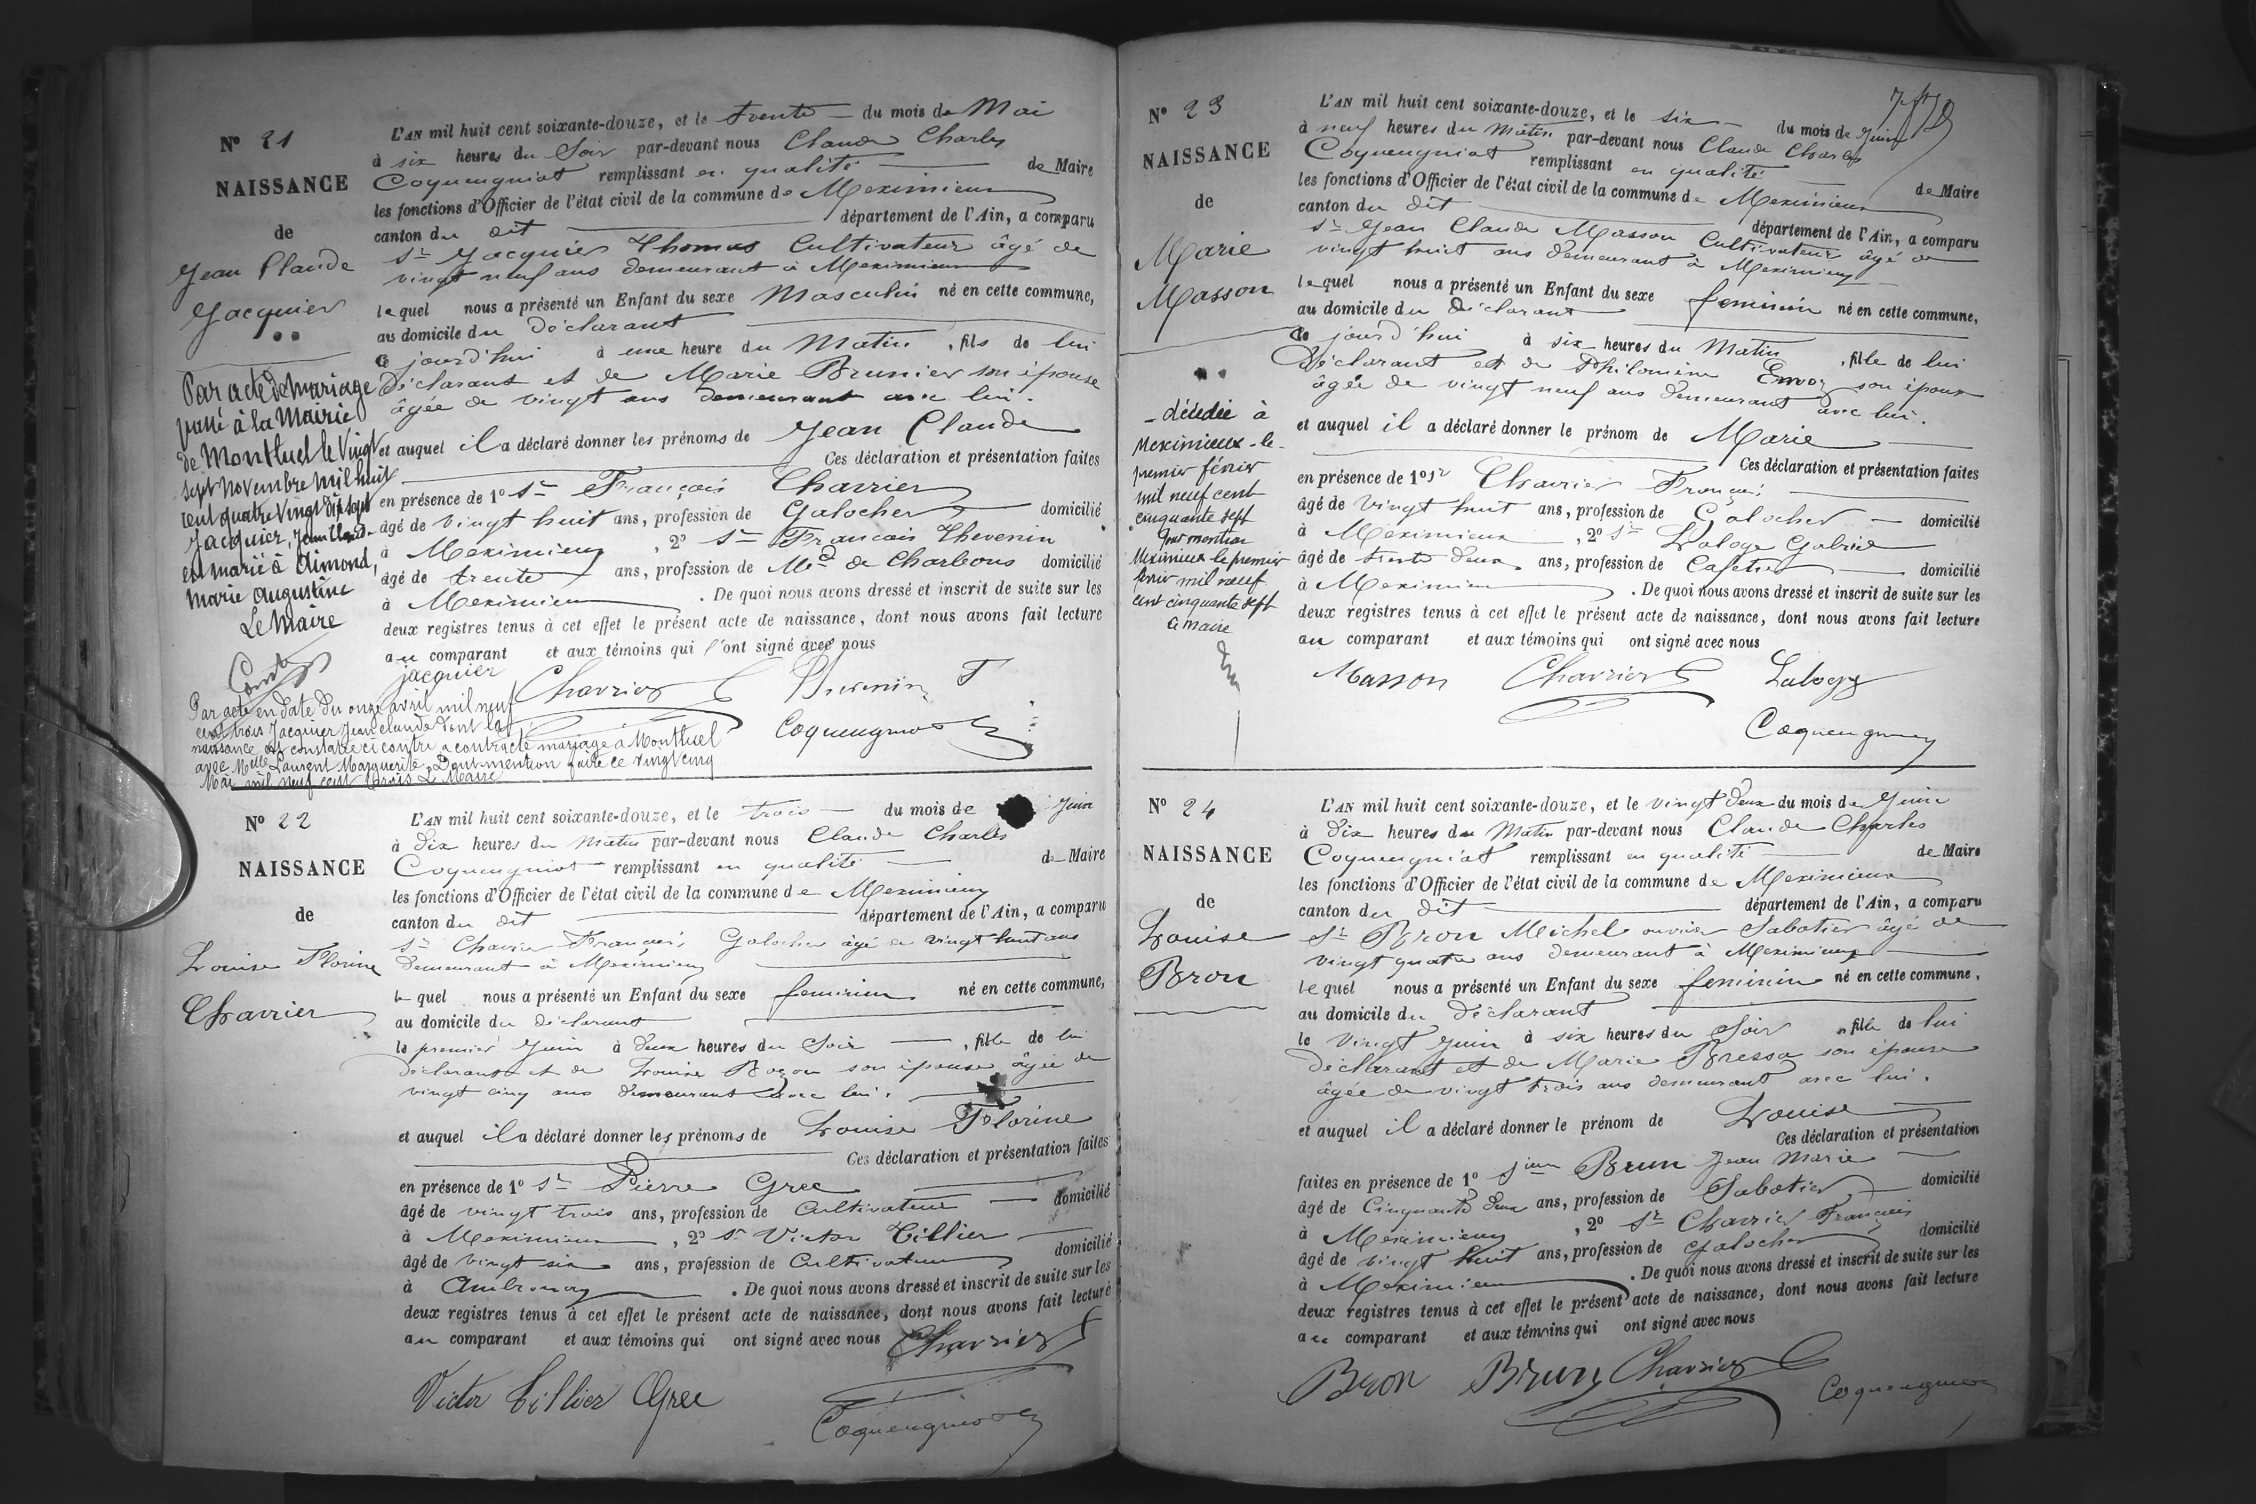 N° 21
NAISSANCE
de
Jean Claude
Jacquier
Par acte de mariage
passé à la Mairie
de Montluel le vingt
sept novembre mil huit
cent quatre vingt dix sept
Jacquier, Jean Claude
est marié à Aimond,
Marie Augustine
Le Maire
Par acte en date du onze avril mil neuf
cent trois Jacquier Jean Claude dont la
naissance est constatée ci contre a contracté mariage à Montluel
avec Melle Laurent Marguerite. Dont mention faite ce vingt cinq
Mai mil neuf cent trois Le Maire
L'AN mil huit cent soixante-douze, et le trente du mois de Mai
à six heures du Soir par-devant nous Claude Charles
Coquengniot remplissant en qualité de Maire
les fonctions d'Officier de l'état civil de la commune de Meximieux
canton du dit département de l'Ain, a comparu
Sr Jacquier Thomas Cultivateur âgé de
vingt neuf ans demeurant à Meximieux
lequel nous a présenté un Enfant du sexe Masculin né en cette commune,
au domicile du déclarant
Ce jourd'hui à une heure du Matin, fils de lui
Déclarant et de Marie Brunier son épouse
âgée de vingt ans demeurant avec lui.
et auquel il a déclaré donner les prénoms de Jean Claude
Ces déclaration et présentation faites
en présence de 1° Sr François Charrier
âgé de vingt huit ans, profession de Galocher domicilié
à Meximieux, 2° Sr François Thevenin
âgé de trente ans, profession de Md de Charbons domicilié
à Meximieux. De quoi nous avons dressé et inscrit de suite sur les
deux registres tenus à cet effet le présent acte de naissance, dont nous avons fait lecture
au comparant et aux témoins qui l'ont signé avec nous
jacquier Charrier Thevenin F
Coquengniot
N° 22
NAISSANCE
de
Louise Florine
Charrier
L'AN mil huit cent soixante-douze, et le trois du mois de Juin
à dix heures du matin par-devant nous Claude Charles
Coquengniot remplissant en qualité de Maire
les fonctions d'Officier de l'état civil de la commune de Meximieux
canton du dit département de l'Ain, a comparu
Sr Charrier François Galocher âgé de vingt huit ans
demeurant à Meximieux
lequel nous a présenté un Enfant du sexe feminin né en cette commune,
au domicile du déclarant
le premier Juin à deux heures du Soir, fille de lui
déclarant et de Louise son épouse âgée de
vingt cinq ans demeurant avec lui.
et auquel il a déclaré donner les prénoms de Louise Florine
Ces déclaration et présentation faites
en présence de 1° Sr Pierre Grec
âgé de vingt trois ans, profession de Cultivateur domicilié
à Meximieux, 2° Sr Victor Tillier
âgé de vingt six ans, profession de Cultivateur domicilié
à Ambronay. De quoi nous avons dressé et inscrit de suite sur les
deux registres tenus à cet effet le présent acte de naissance, dont nous avons fait lecture
au comparant et aux témoins qui ont signé avec nous Charrier
Victor Tillier Grec
Coquengniot
N° 23
NAISSANCE
de
Marie
Masson
décédée à
Meximieux le
premier février
mil neuf cent
cinquante sept
Pour mention
Meximieux le premier
février mil neuf
cent cinquante sept
Le Maire
L'AN mil huit cent soixante-douze, et le six du mois de Juin
à neuf heures du matin par-devant nous Claude Charles
Coquengniot remplissant en qualité de Maire
les fonctions d'Officier de l'état civil de la commune de Meximieux
canton du dit département de l'Ain, a comparu
Sr Jean Claude Masson Cultivateur âgé de
vingt huit ans demeurant à Meximieux
lequel nous a présenté un Enfant du sexe feminin né en cette commune,
au domicile du déclarant
Ce jourd'hui à six heures du Matin, fille de lui
Déclarant et de Philomène son épouse
âgée de vingt neuf ans demeurant avec lui.
et auquel il a déclaré donner le prénom de Marie
Ces déclaration et présentation faites
en présence de 1° Sr Charrier François
âgé de vingt huit ans, profession de Galocher domicilié
à Meximieux, 2° Sr Laloge Gabriel
âgé de trente deux ans, profession de Cafetier domicilié
à Meximieux. De quoi nous avons dressé et inscrit de suite sur les
deux registres tenus à cet effet le présent acte de naissance, dont nous avons fait lecture
au comparant et aux témoins qui ont signé avec nous
Masson Charrier Laloge
Coquengniot
N° 24
NAISSANCE
de
Louise
Bron
L'AN mil huit cent soixante-douze, et le vingt deux du mois de Juin
à dix heures du Matin par-devant nous Claude Charles
Coquengniot remplissant en qualité de Maire
les fonctions d'Officier de l'état civil de la commune de Meximieux
canton du dit département de l'Ain, a comparu
Sr Bron Michel ouvrier Sabotier âgé de
vingt quatre ans demeurant à Meximieux
lequel nous a présenté un Enfant du sexe feminin né en cette commune,
au domicile du déclarant
le vingt Juin à six heures du Soir, fille de lui
Déclarant et de Marie Bressa son épouse
âgée de vingt trois ans demeurant avec lui.
et auquel il a déclaré donner le prénom de Louise
Ces déclaration et présentation
faites en présence de 1° Sieur Brun Jean Marie
âgé de Cinquante deux ans, profession de Sabotier domicilié
à Meximieux, 2° Sr Charrier François
âgé de vingt huit ans, profession de Galocher domicilié
à Meximieux. De quoi nous avons dressé et inscrit de suite sur les
deux registres tenus à cet effet le présent acte de naissance, dont nous avons fait lecture
au comparant et aux témoins qui ont signé avec nous
Bron Brun Charrier
Coquengniot